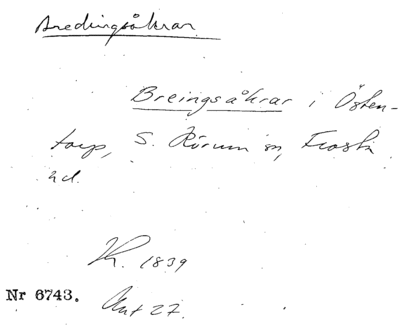 Bredingsåkrar
Breingsåkrar i Östen-
torp, S. Rörum sn, Frosta
hd.
Kt. 1839
Nr 6743. Akt 27.